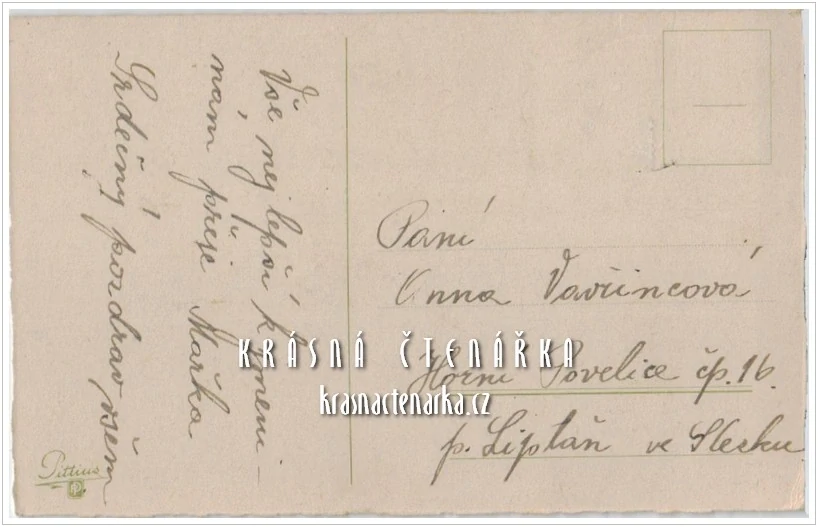 Vše nej lepší k jmeni-
nám přeje Mařka
Srdečný pozdrav všem
Paní
Anna Vavřincová
Horní Povelice čp. 16.
p. Liptáň ve Slecku
KRÁSNÁ ČTENÁŘKA
krasnactenarka.cz
Pittius